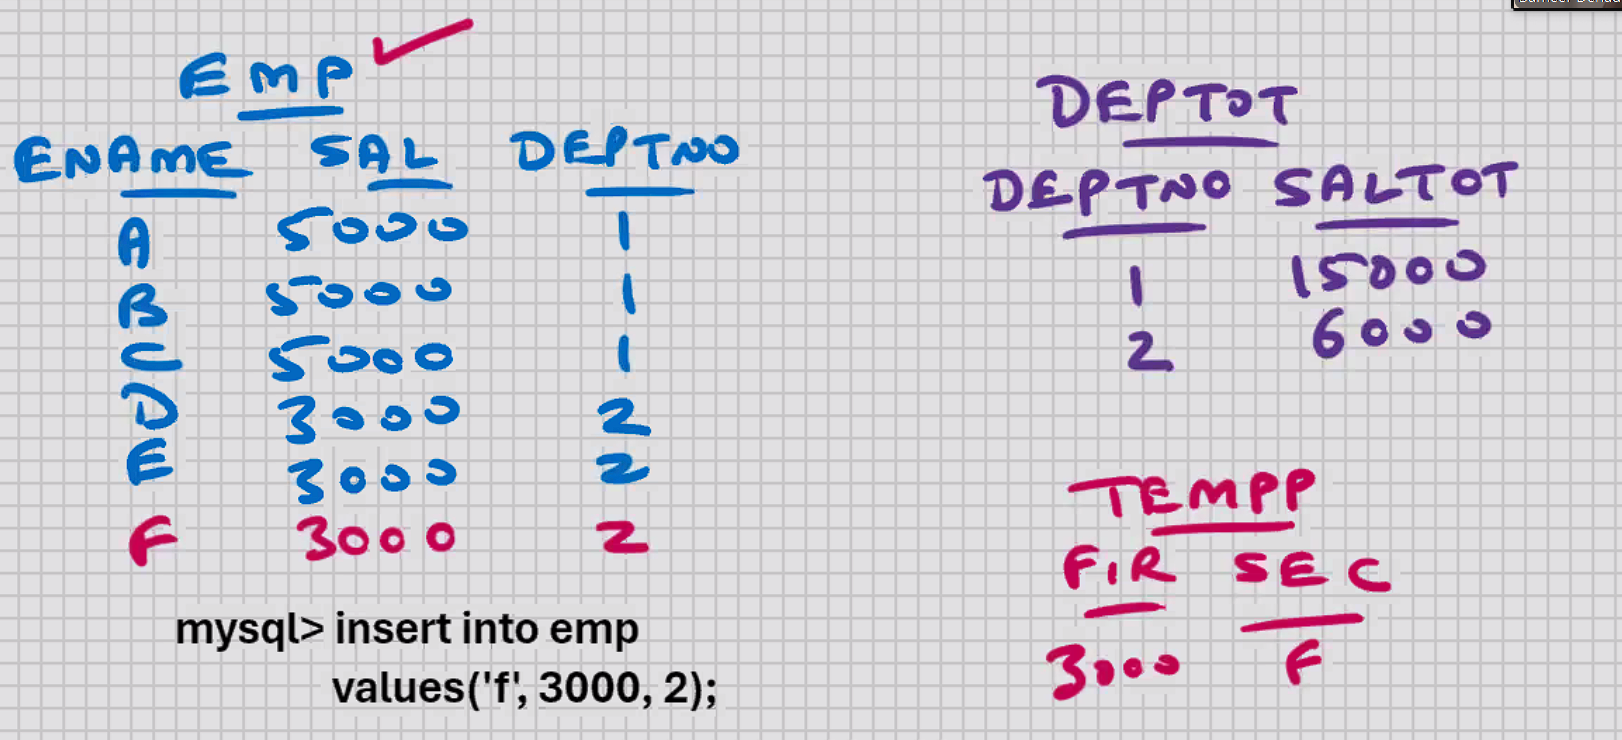 EMP
ENAME SAL DEPTNO
A 5000 1
B 5000 1
C 5000 1
D 3000 2
E 3000 2
F 3000 2
mysql> insert into emp
values('f', 3000, 2);
DEPTOT
DEPTNO SALTOT
1 15000
2 6000
TEMPP
FIR SEC
3000 F